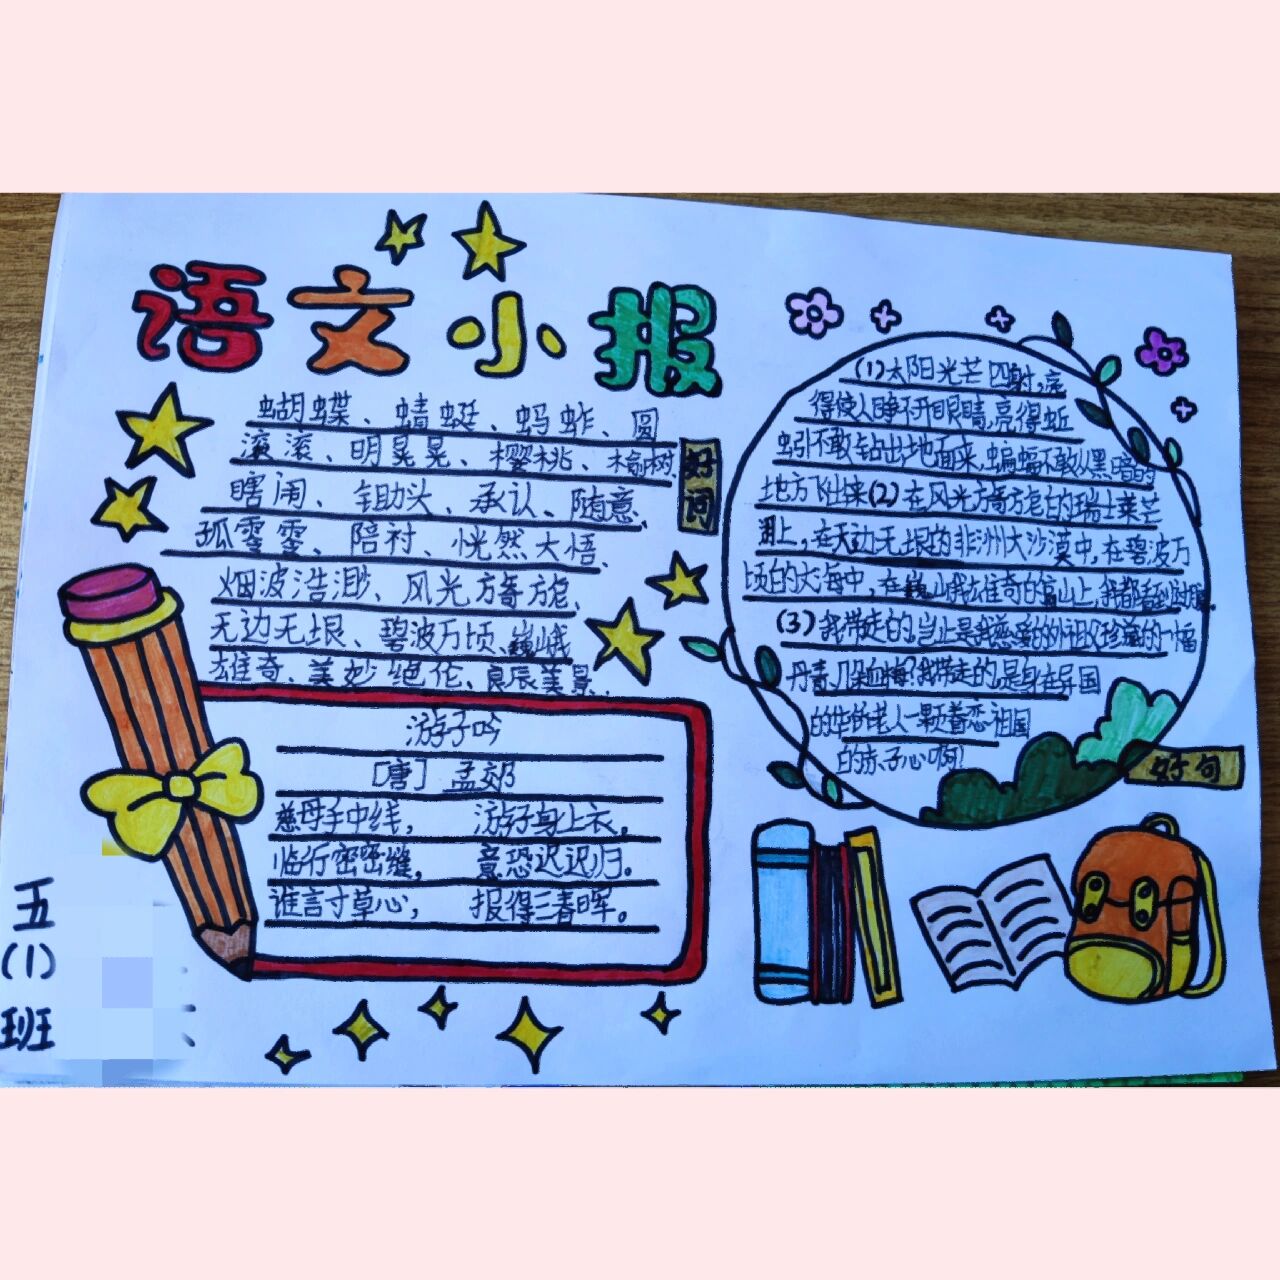 语文小报
蝴蝶、蜻蜓、蚂蚱、圆
滚滚、明晃晃、樱桃、榆树、
瞎闹、锄头、承认、随意、
孤零零、陪衬、恍然大悟、
烟波浩渺、风光旖旎、
无边无垠、碧波万顷、巍峨
雄奇、美妙绝伦、良辰美景、
好词
游子吟
[唐] 孟郊
慈母手中线， 游子身上衣。
临行密密缝， 意恐迟迟归。
谁言寸草心， 报得三春晖。
(1)太阳光芒四射,亮
得使人睁不开眼睛,亮得蚯
蚓不敢钻出地面来,蝙蝠不敢从黑暗的
地方飞出来(2)在风光旖旎的瑞士莱芒
湖上,在无边无垠的非洲大沙漠中,在碧波万
顷的大海中,在巍峨雄奇的高山上,我都看到过
(3)我带走的,岂止是我慈爱的外祖父珍藏的一幅
丹青,几朵血梅?我带走的,是身在异国
的华侨老人一颗眷恋祖国
的赤子心啊!
好句
五
(1)
班